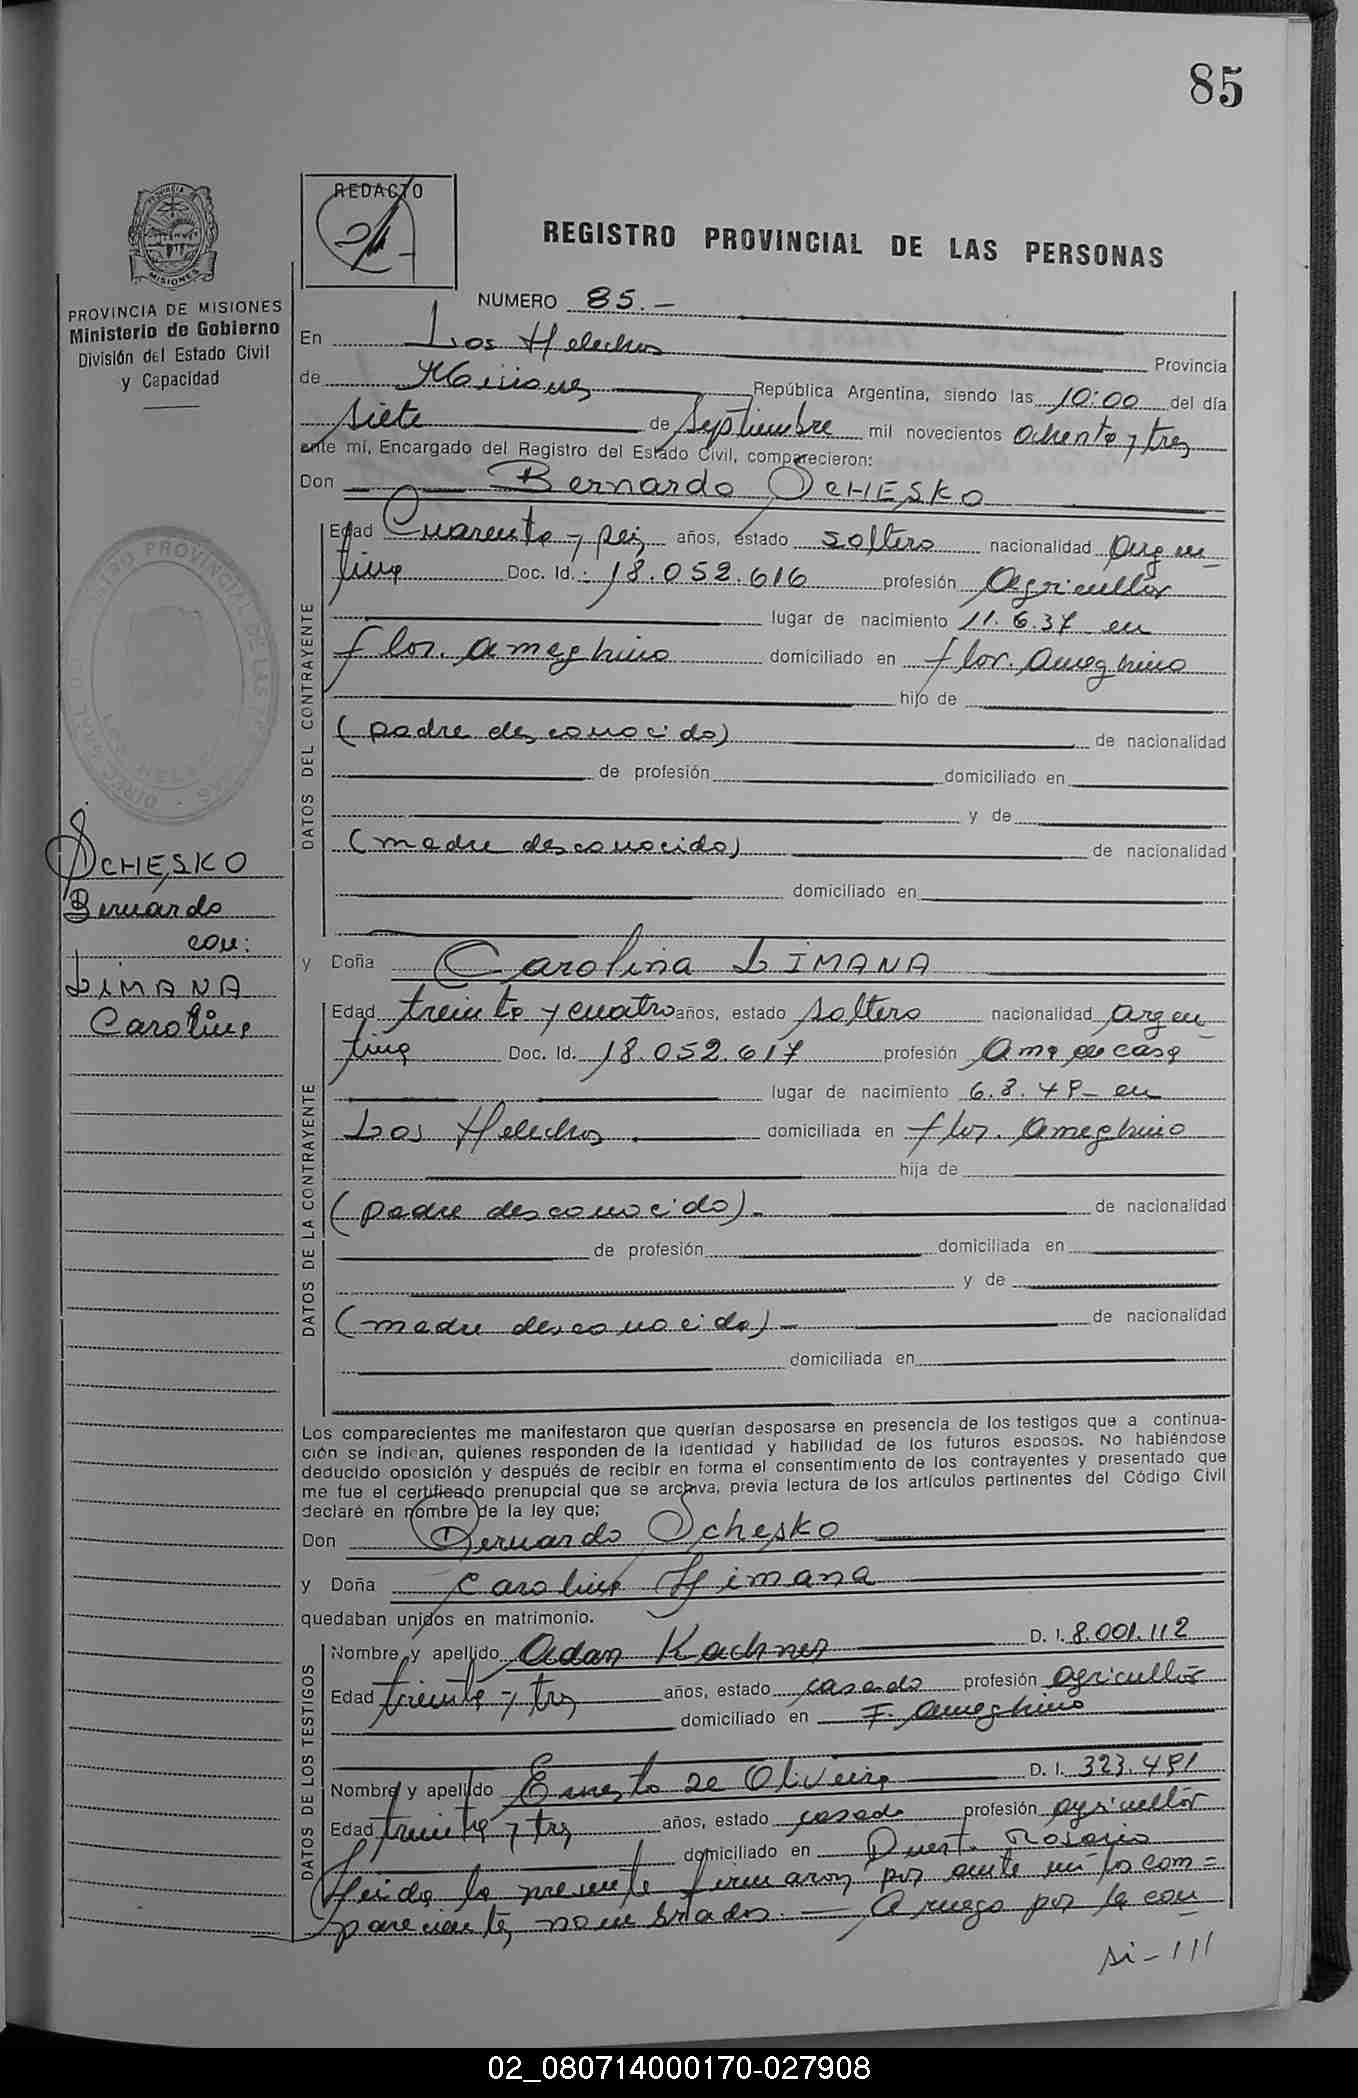 85
REDACTO
REGISTRO PROVINCIAL DE LAS PERSONAS
PROVINCIA DE MISIONES
Ministerio de Gobierno
División del Estado Civil
y Capacidad
MISIONES
NUMERO 85.-
En Los Helechos Provincia
de Misiones República Argentina, siendo las 10:00 del día
siete de Septiembre mil novecientos ochenta y tres
ante mí, Encargado del Registro del Estado Civil, comparecieron:
Don Bernardo OCHESKO
OCHESKO
Bernardo
con:
LIMANA
Carolina
DATOS DEL CONTRAYENTE
Edad Cuarenta y seis años, estado soltero nacionalidad Argen-
tina Doc. Id.: 18.052.616 profesión Agricultor
lugar de nacimiento 11.6.37 en
flor. Ameghino domiciliado en flor. Ameghino
hijo de
(padre desconocido) de nacionalidad
de profesión domiciliado en
y de
(madre desconocido) de nacionalidad
domiciliado en
y Doña Carolina LIMANA
DATOS DE LA CONTRAYENTE
Edad treinta y cuatro años, estado soltera nacionalidad Argen-
tina Doc. Id. 18.052.617 profesión Ama de casa
lugar de nacimiento 6.8.49- en
Los Helechos domiciliada en flor. Ameghino
hija de
(padre desconocido).- de nacionalidad
de profesión domiciliada en
y de
(madre desconocida)- de nacionalidad
domiciliada en
Los comparecientes me manifestaron que querían desposarse en presencia de los testigos que a continua-
ción se indican, quienes responden de la identidad y habilidad de los futuros esposos. No habiéndose
deducido oposición y después de recibir en forma el consentimiento de los contrayentes y presentado que
me fue el certificado prenupcial que se archiva, previa lectura de los artículos pertinentes del Código Civil
declaré en nombre de la ley que;
Don Bernardo Ochesko
y Doña Carolina Limana
quedaban unidos en matrimonio.
DATOS DE LOS TESTIGOS
Nombre y apellido Adan Kachner D. I. 8.001.112
Edad treinta y tres años, estado casado profesión agricultor
domiciliado en F. Ameghino
Nombre y apellido Ernesto de Oliveira D. I. 323.491
Edad treinta y tres años, estado casado profesión agricultor
domiciliado en Puerto Rosario
Leida la presente firmaron por ante mi los com=
parecientes nombrados.- A ruego por la con-
si-///
02_080714000170-027908